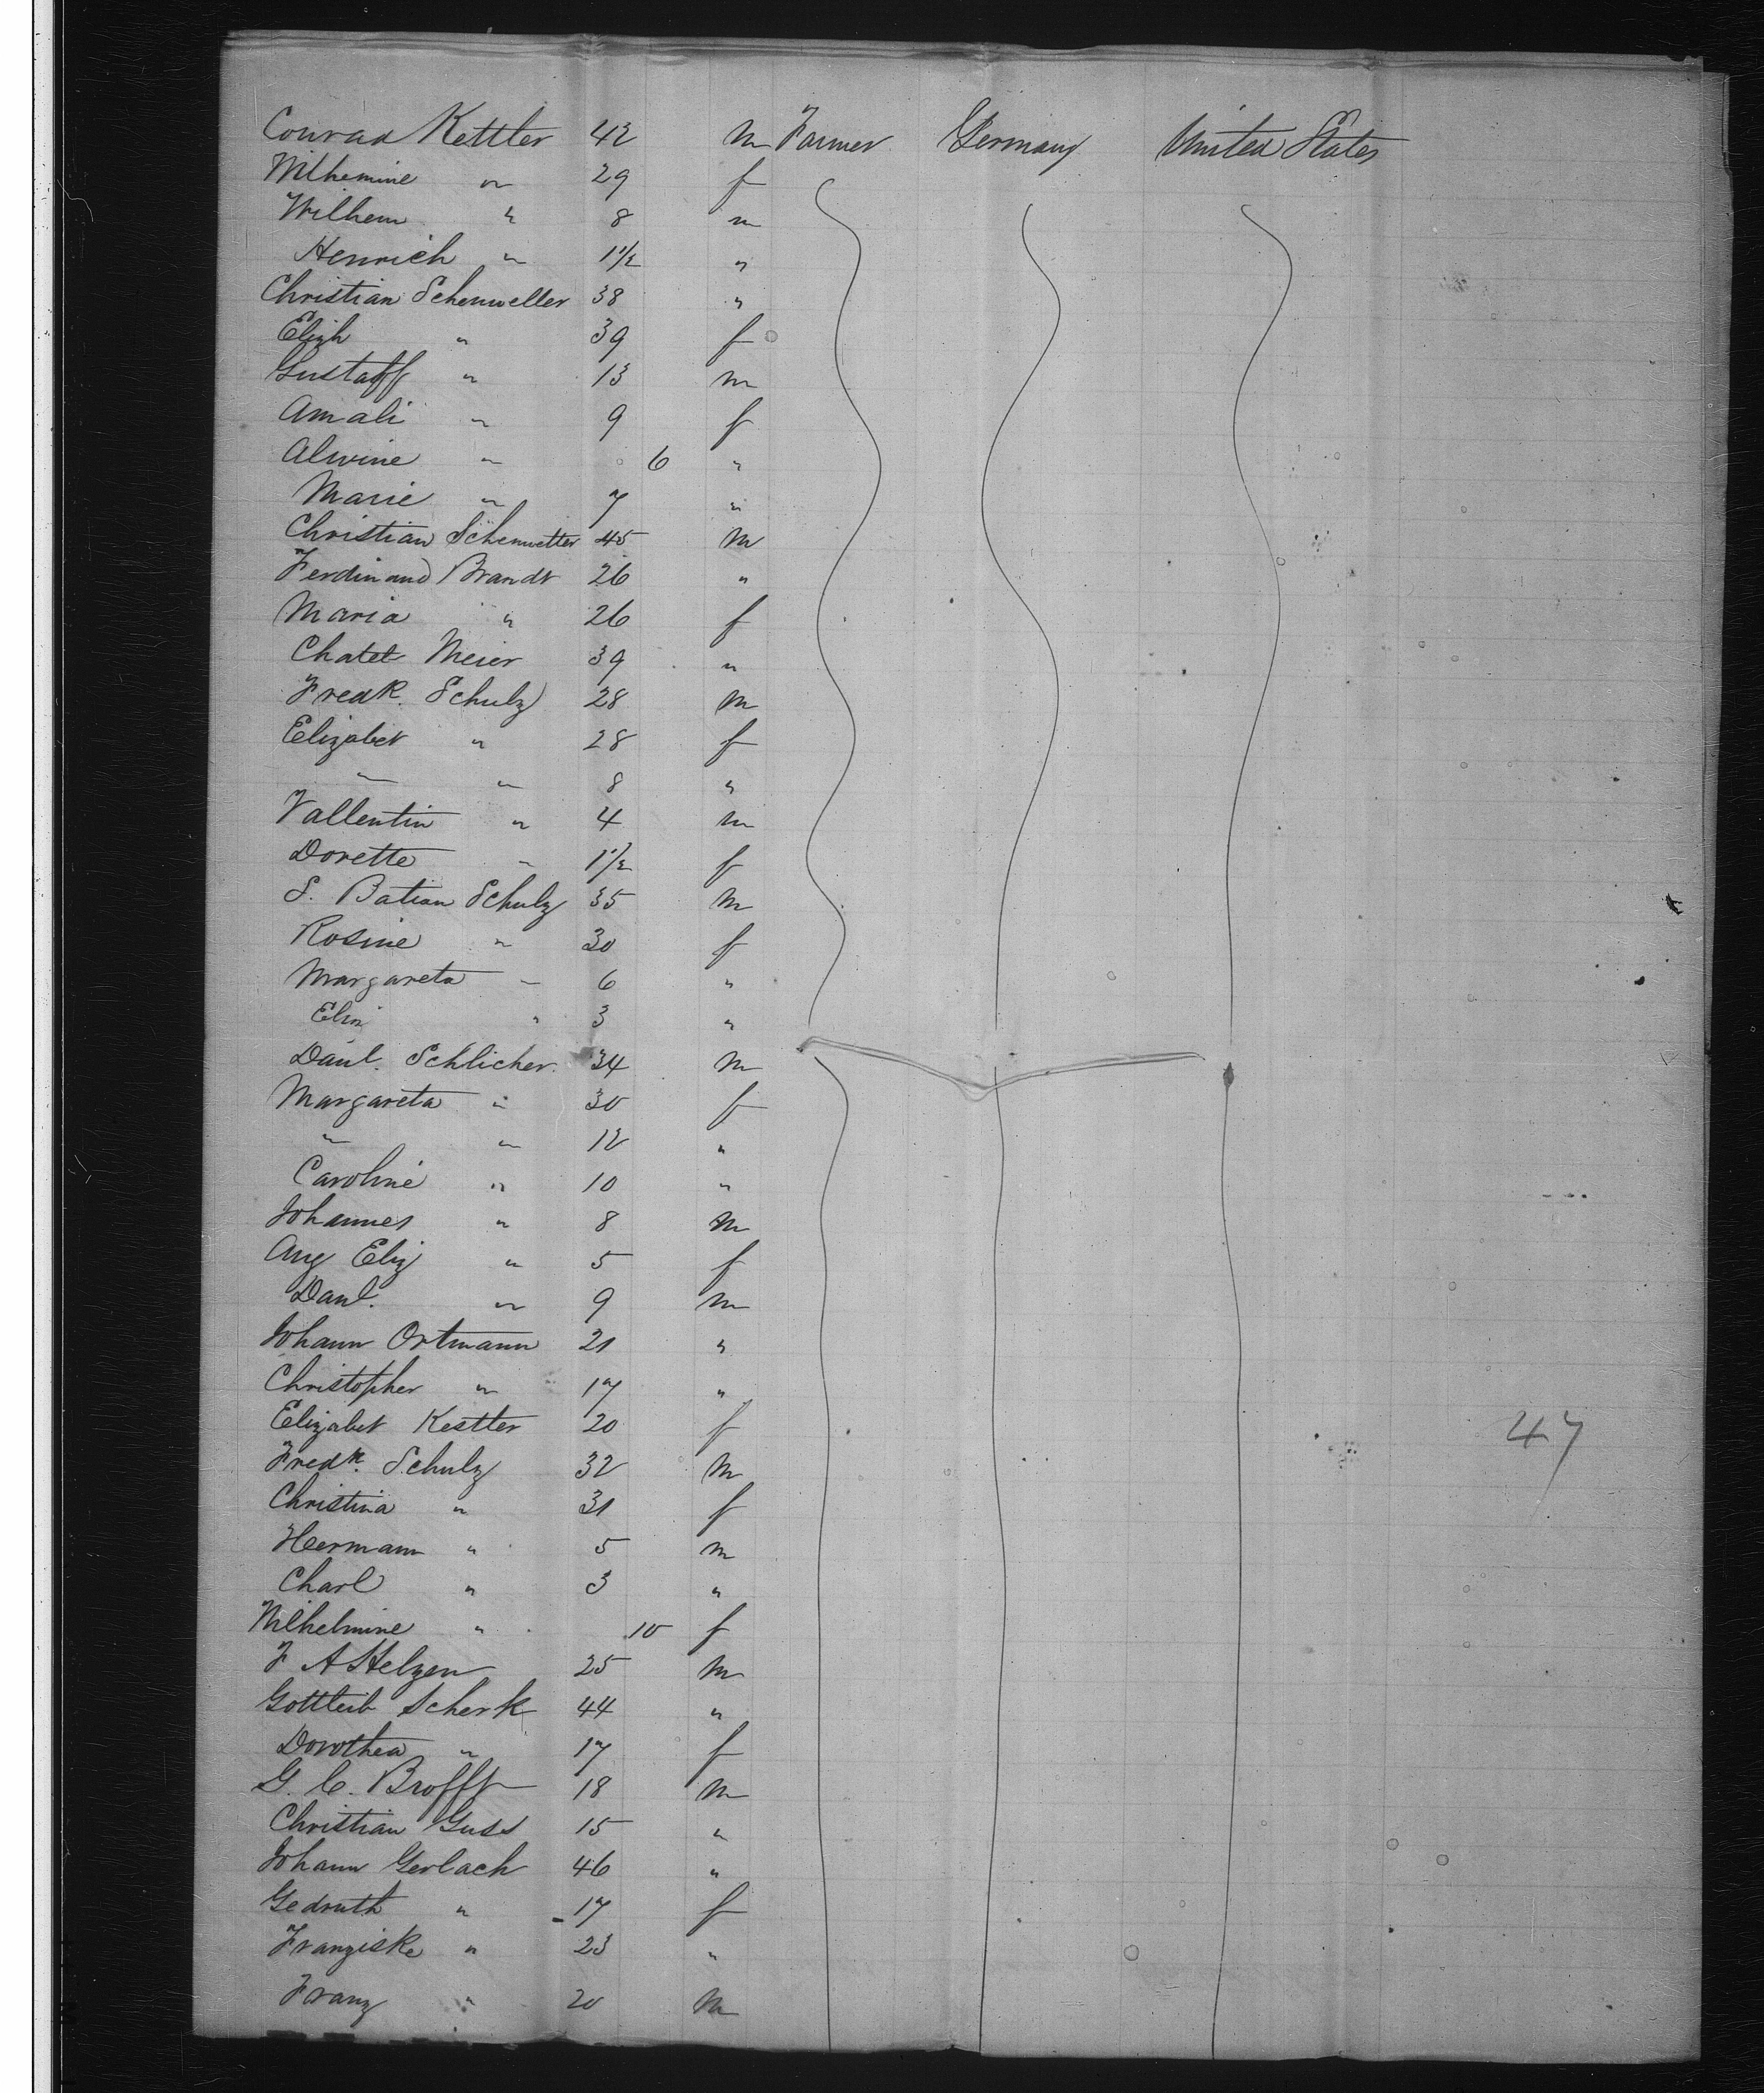 Conrad Kettler 42 m Farmer Germany United States
Wilhemine " 29 f
Wilhem " 8 m
Henrich " 1 1/2 "
Christian Schenweller 38 "
Elizh " 39 f
Gustaff " 13 m
Amali " 9 f
Alwine " 6 "
Marie " 7 "
Christian Schenwetter 45 m
Ferdinand Brandt 26 "
Maria " 26 f
Chatet Meier 39 "
Fredk. Schulz 28 m
Elizabet " 28 f
" " 8 "
Vallentin " 4 m
Dorette " 1 1/2 f
S. Batian Schulz 35 m
Rosine " 30 f
Margareta " 6 "
Eliz " 3 "
Danl. Schlicher 34 m
Margareta " 30 f
" " 12 "
Caroline " 10 "
Johannes " 8 m
Aug Eliz " 5 f
Danl. " 9 m
Johann Ortmann 21 "
Christopher " 17 "
Elizabet Kestler 20 f
47
Fredk. Schulz 32 m
Christina " 31 f
Heermann " 5 m
Charl " 3 "
Wilhelmine " 10 f
F A Helzen 25 m
Gottleib Scherk 44 "
Dorothea " 17 f
G. C. Brofft 18 m
Christian Guss 15 "
Johann Gerlach 46 "
Gedruth " 17 f
Franziske " 23 "
Franz " 20 m